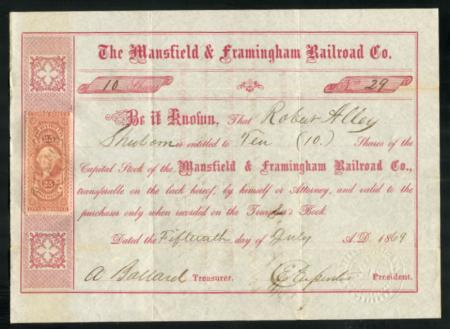 The Mansfield & Framingham Railroad Co.
10 Shares No. 29
Be it Known, That Robert Alley
is entitled to Ten (10.) Shares of the
Capital Stock of the Mansfield & Framingham Railroad Co.,
transferable on the back hereof, by himself or Attorney, and valid to the
purchaser only when recorded on the Transfer Book.
Dated the Fifteenth day of July A.D. 1869
A Ballard Treasurer. President.